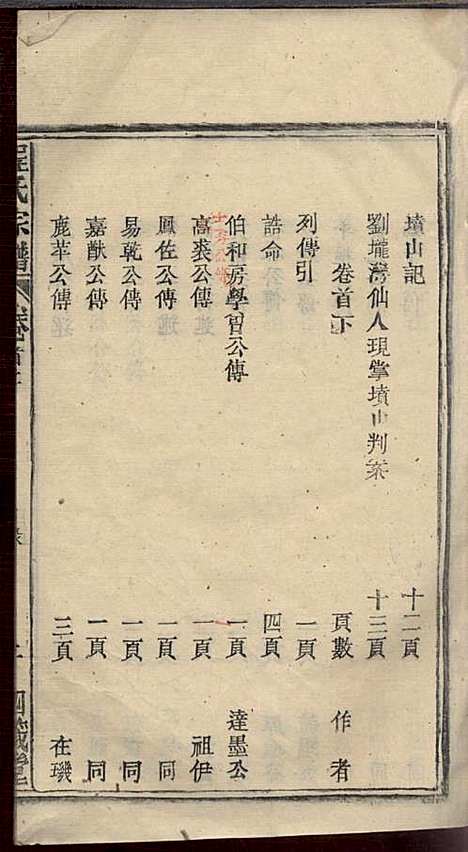 墳山記 十二頁
劉壠灣仙人現掌墳山判案 十三頁
卷首下 頁數 作者
列傳引 一頁
誥命 四頁
伯和房學曾公傳 一頁 達墨公
高裘公傳 一頁 祖伊
鳳佐公傳 一頁 同
易乾公傳 一頁 同
嘉猷公傳 一頁 同
鹿苹公傳 三頁 在璣
氏宗譜